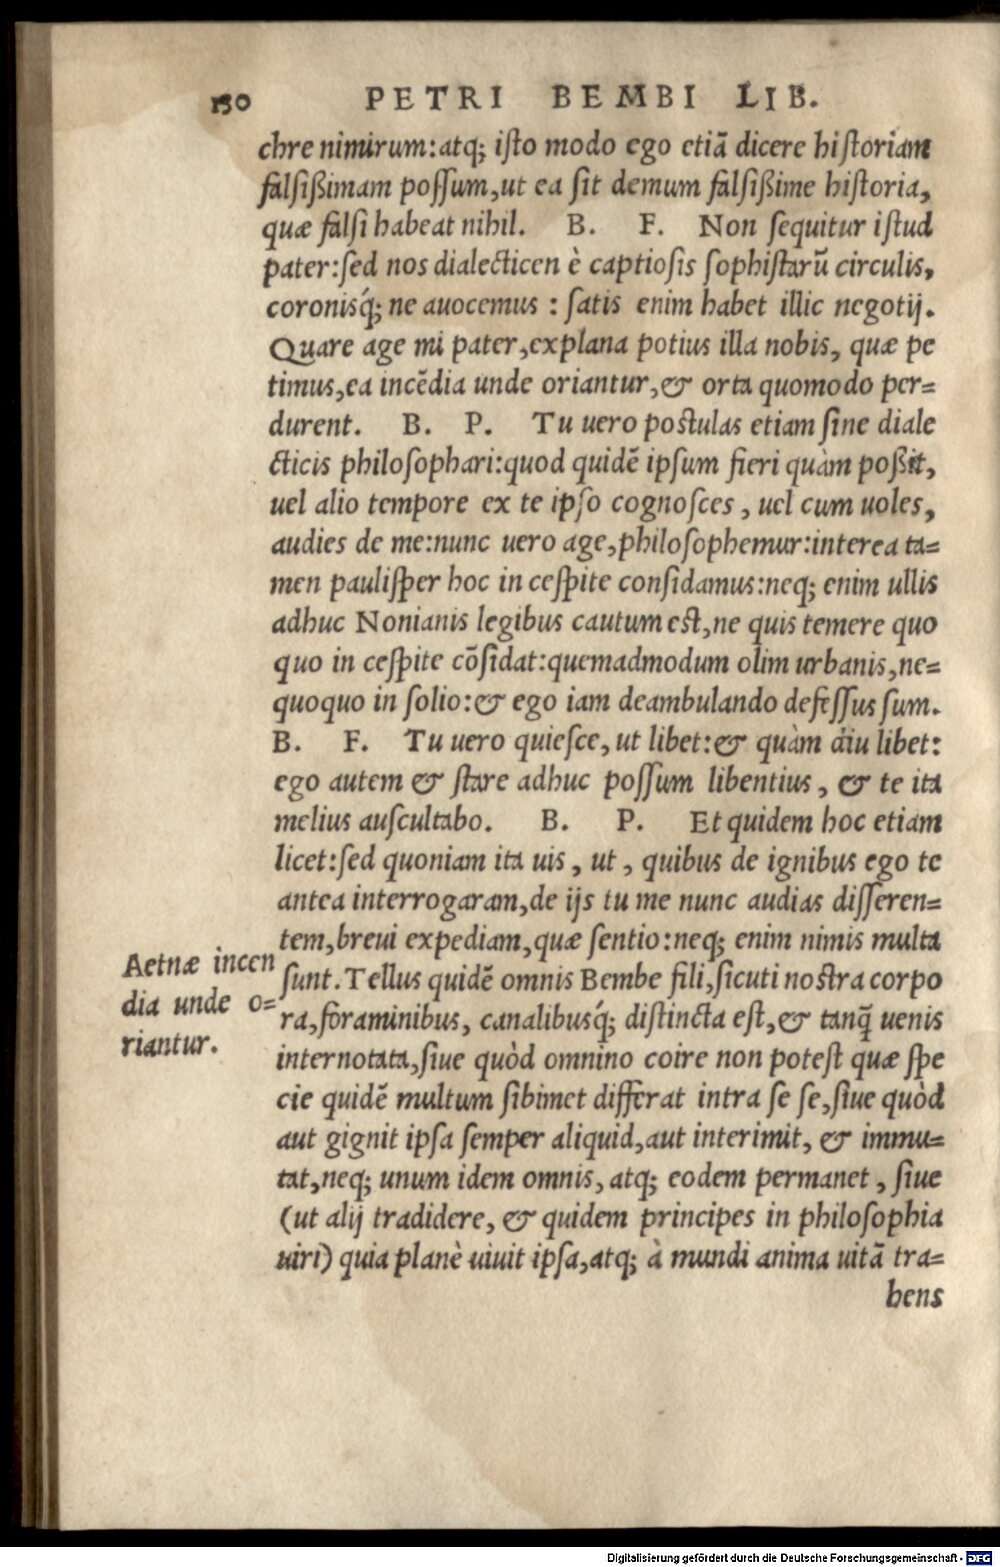 130 PETRI BEMBI LIB.
chre nimirum: atq; iſto modo ego etiã dicere hiſtoriam
falſißimam poſſum, ut ea ſit demum falſißime hiſtoria,
quæ falſi habeat nihil. B. F. Non ſequitur iſtud
pater: ſed nos dialecticen è captioſis ſophiſtarũ circulis,
coronisq́; ne auocemus : ſatis enim habet illic negotij.
Quare age mi pater, explana potius illa nobis, quæ pe
timus, ea incẽdia unde oriantur, & orta quomodo per=
durent. B. P. Tu uero poſtulas etiam ſine diale
cticis philoſophari: quod quidẽ ipſum fieri quàm poßit,
uel alio tempore ex te ipſo cognoſces, uel cum uoles,
audies de me: nunc uero age, philoſophemur: interea ta=
men pauliſper hoc in ceſpite conſidamus: neq; enim ullis
adhuc Nonianis legibus cautum eſt, ne quis temere quo
quo in ceſpite cõſidat: quemadmodum olim urbanis, ne=
quoquo in ſolio: & ego iam deambulando defeſſus ſum.
B. F. Tu uero quieſce, ut libet: & quàm diu libet:
ego autem & ſtare adhuc poſſum libentius, & te ita
melius auſcultabo. B. P. Et quidem hoc etiam
licet: ſed quoniam ita uis, ut, quibus de ignibus ego te
antea interrogaram, de ijs tu me nunc audias diſſeren=
tem, breui expediam, quæ ſentio: neq; enim nimis multa
ſunt. Tellus quidẽ omnis Bembe fili, ſicuti noſtra corpo
ra, foraminibus, canalibusq́; diſtincta eſt, & tanq̃ uenis
internotata, ſiue quòd omnino coire non poteſt quæ ſpe
cie quidẽ multum ſibimet differat intra ſe ſe, ſiue quòd
aut gignit ipſa ſemper aliquid, aut interimit, & immu=
tat, neq; unum idem omnis, atq; eodem permanet, ſiue
(ut alij tradidere, & quidem principes in philoſophia
uiri) quia planè uiuit ipſa, atq; à mundi anima uitã tra=
bens
Aetnæ incen
dia unde o=
riantur.
Digitalisierung gefördert durch die Deutsche Forschungsgemeinschaft - DFG